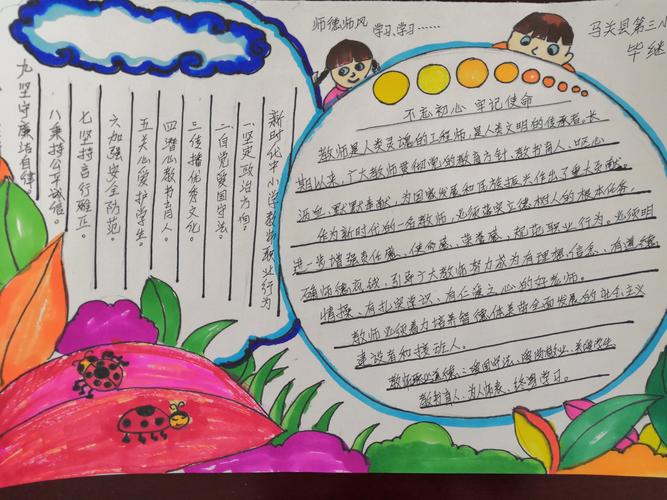 师德师风
学习、学习……
马关县第三小
毕继
新时代中小学教师职业行为
一坚定政治方向。
二自觉爱国守法。
三传播优秀文化。
四潜心教书育人。
五关心爱护学生。
六加强安全防范。
七坚持言行雅正。
八秉持公平诚信。
九坚守廉洁自律。
不忘初心 牢记使命
教师是人类灵魂的工程师,是人类文明的传承者。长
期以来,广大教师贯彻党的教育方针、教书育人、呕心
沥血、默默奉献,为国家发展和民族振兴作出了重大贡献。
作为新时代的一名教师,必须落实立德树人的根本任务,
进一步增强责任感、使命感、荣誉感,规范职业行为。必须明
确师德底线,引导广大教师努力成为有理想信念、有道德
情操、有扎实学识、有仁爱之心的好老师。
教师必须着力培养智德体美劳全面发展的社会主义
建设者和接班人。
教师职业道德:爱国守法、爱岗敬业、关爱学生
教书育人、为人师表、终身学习。